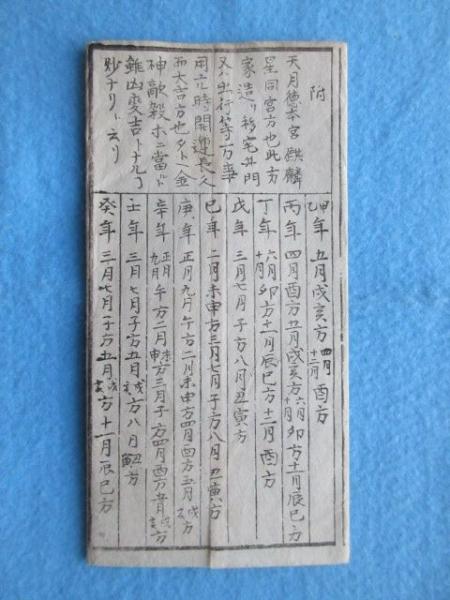 附
天月徳本宮麒麟
星同宮方也此方
家造リ移宅外門
又ハ出行等万事
用ユル時開運長久
而大吉方也タトヘ金
神敵殺ホニ當ド
雖凶変吉トナル
妙ナリト云リ
甲乙年 五月戌亥方 四月十二月酉方
丙年 四月酉方五月戌亥方六月十月卯方十一月辰巳方
丁年 六月十月卯方十一月辰巳方十二月酉方
戊年 三月七月子方八月丑寅方
巳年 二月未申方三月七月子方八月丑寅方
庚年 正月九月午方二月未申方四月酉方五月戌亥方
辛年 正月九月午方二月未申方三月子方四月酉方五月戌亥方
壬年 三月七月子方五月戌亥方八月丑寅方
癸年 三月七月子方五月戌亥方十一月辰巳方